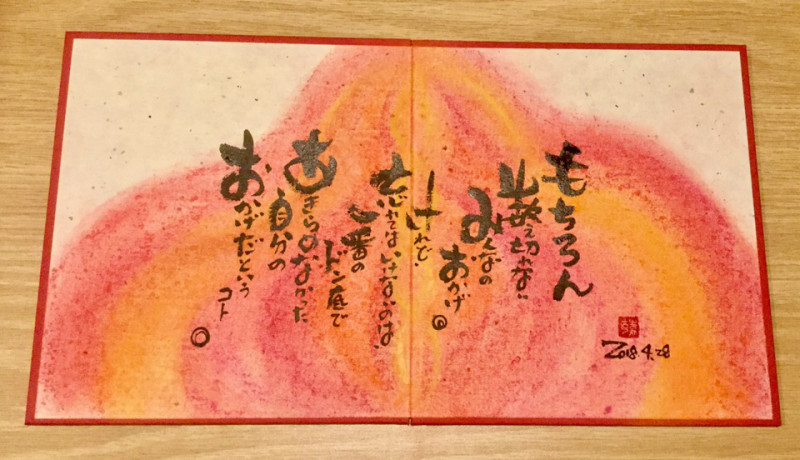 もちろん
数え切れない
みんなの
おかげ
けれど、
忘れてはいけないのは、
一番の
ドン底で
あきらめなかった
自分の
おかげだという
コト
2018.4.28